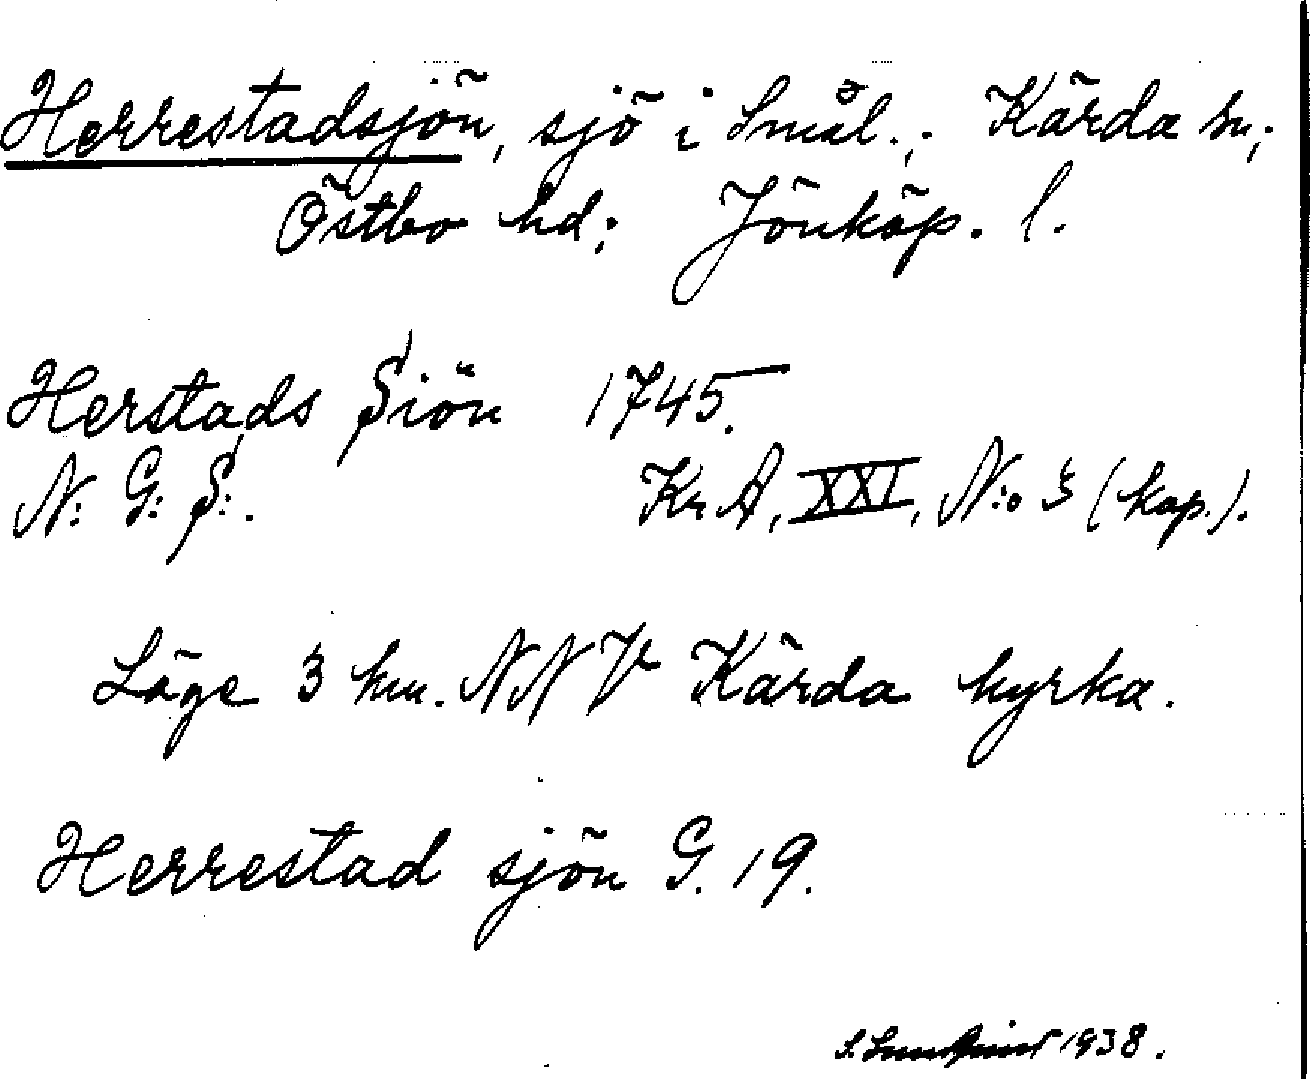 Herrestadsjön, sjö i Smål.; Kärda sn;
Östbo hd; Jönköp. l.
Herstads Siön 1745.
N: G: S:.
Kr A, XXI, N:o 3 (kop.).
Läge 3 km. NNV Kärda kyrka.
Herrestad sjön G. 19.
S. Sundqvist 1938.